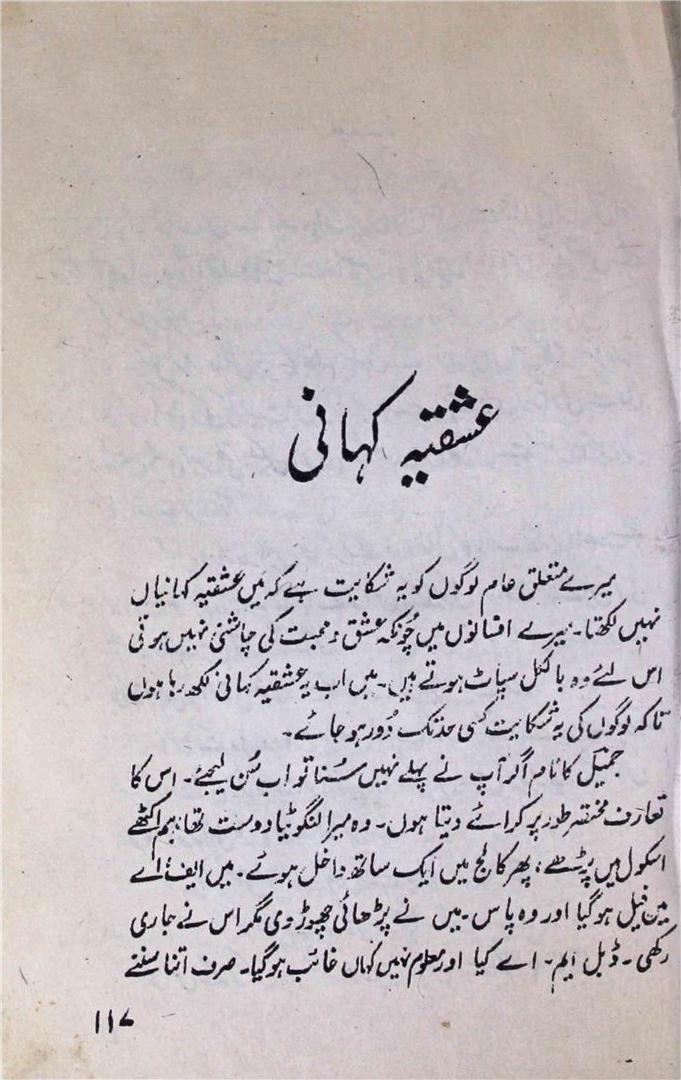 عشقیہ کہانی
میرے متعلق عام لوگوں کو یہ شکایت ہے کہ میں عشقیہ کہانیاں
نہیں لکھتا۔ میرے افسانوں میں چونکہ عشق و محبت کی چاشنی نہیں ہوتی
اس لئے وہ بالکل سپاٹ ہوتے ہیں۔ میں اب یہ عشقیہ کہانی لکھ رہا ہوں
تاکہ لوگوں کی یہ شکایت کسی حد تک دُور ہو جائے۔
جمیل کا نام اگر آپ نے پہلے نہیں سُنا تو اب سُن لیجئے۔ اس کا
تعارف مختصر طور پر کرائے دیتا ہوں۔ وہ میرا لنگوٹیا دوست تھا، ہم اکٹھے
اسکول میں پڑھے، پھر کالج میں ایک ساتھ داخل ہوئے۔ میں ایف، اے
میں فیل ہو گیا اور وہ پاس۔ میں نے پڑھائی چھوڑ دی مگر اس نے جاری
رکھی۔ ڈبل ایم۔ اے کیا اور معلوم نہیں کہاں غائب ہو گیا۔ صرف اتنا سننے
۱۱۷